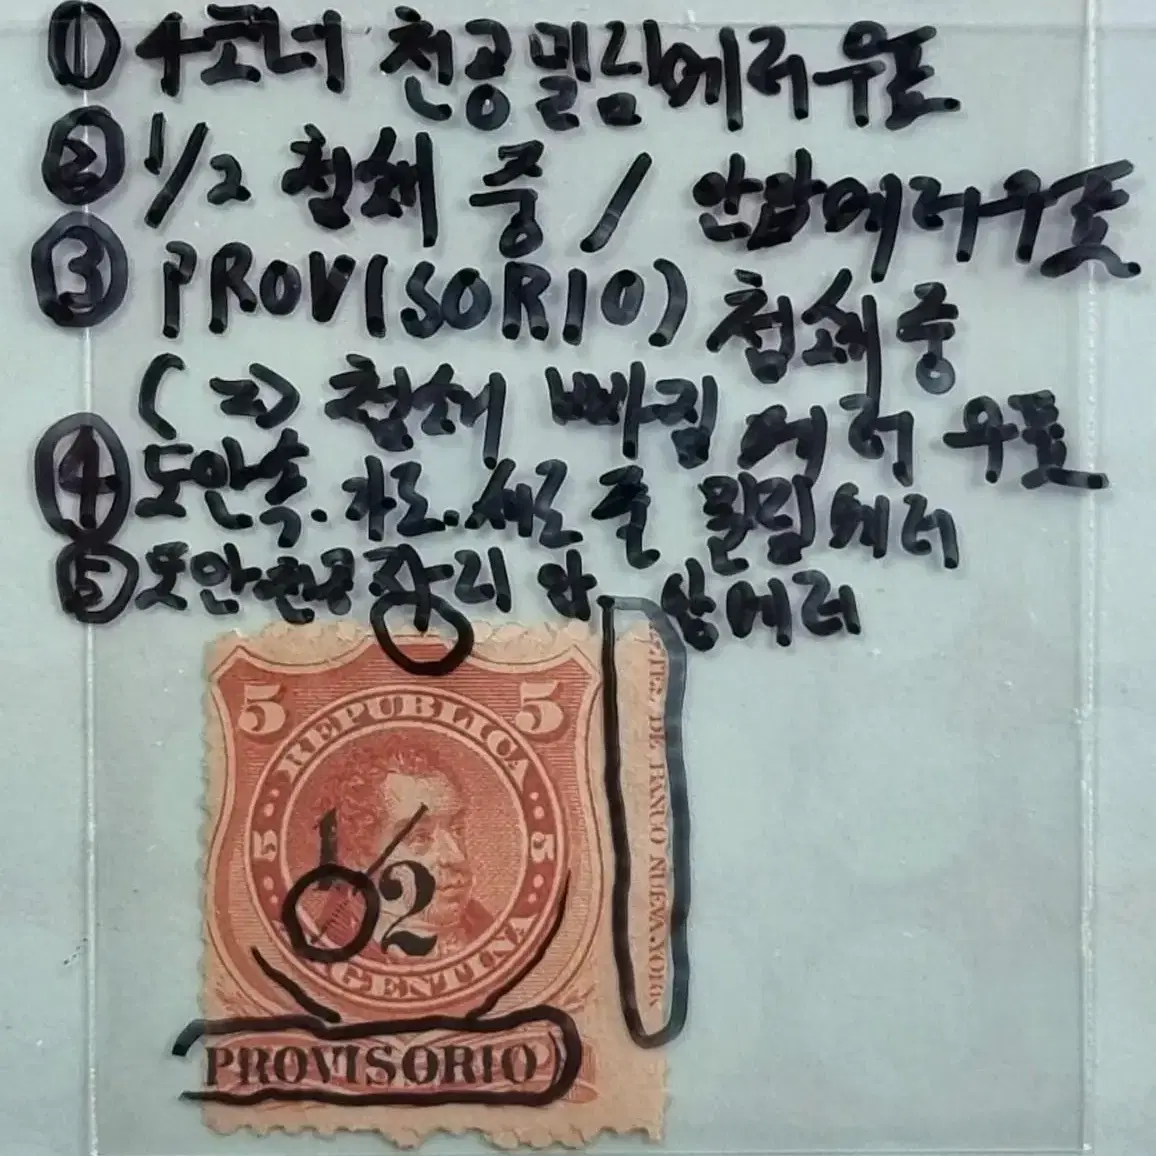 ① 4코너 천공밀림에러우표
② 1/2 첨쇄 중 / 안찹에러우표
③ PROVISORIO) 첨쇄중
(고) 첨쇄 빠짐 에러 우표
④ 도안속.가로.세로 줄 밀림에러
⑤ 도안천공 자리 이상에러
5 5
REPUBLICA
5 5
1/2
ARGENTINA
PROVISORIO
DE BANCO NUEVA.YORK